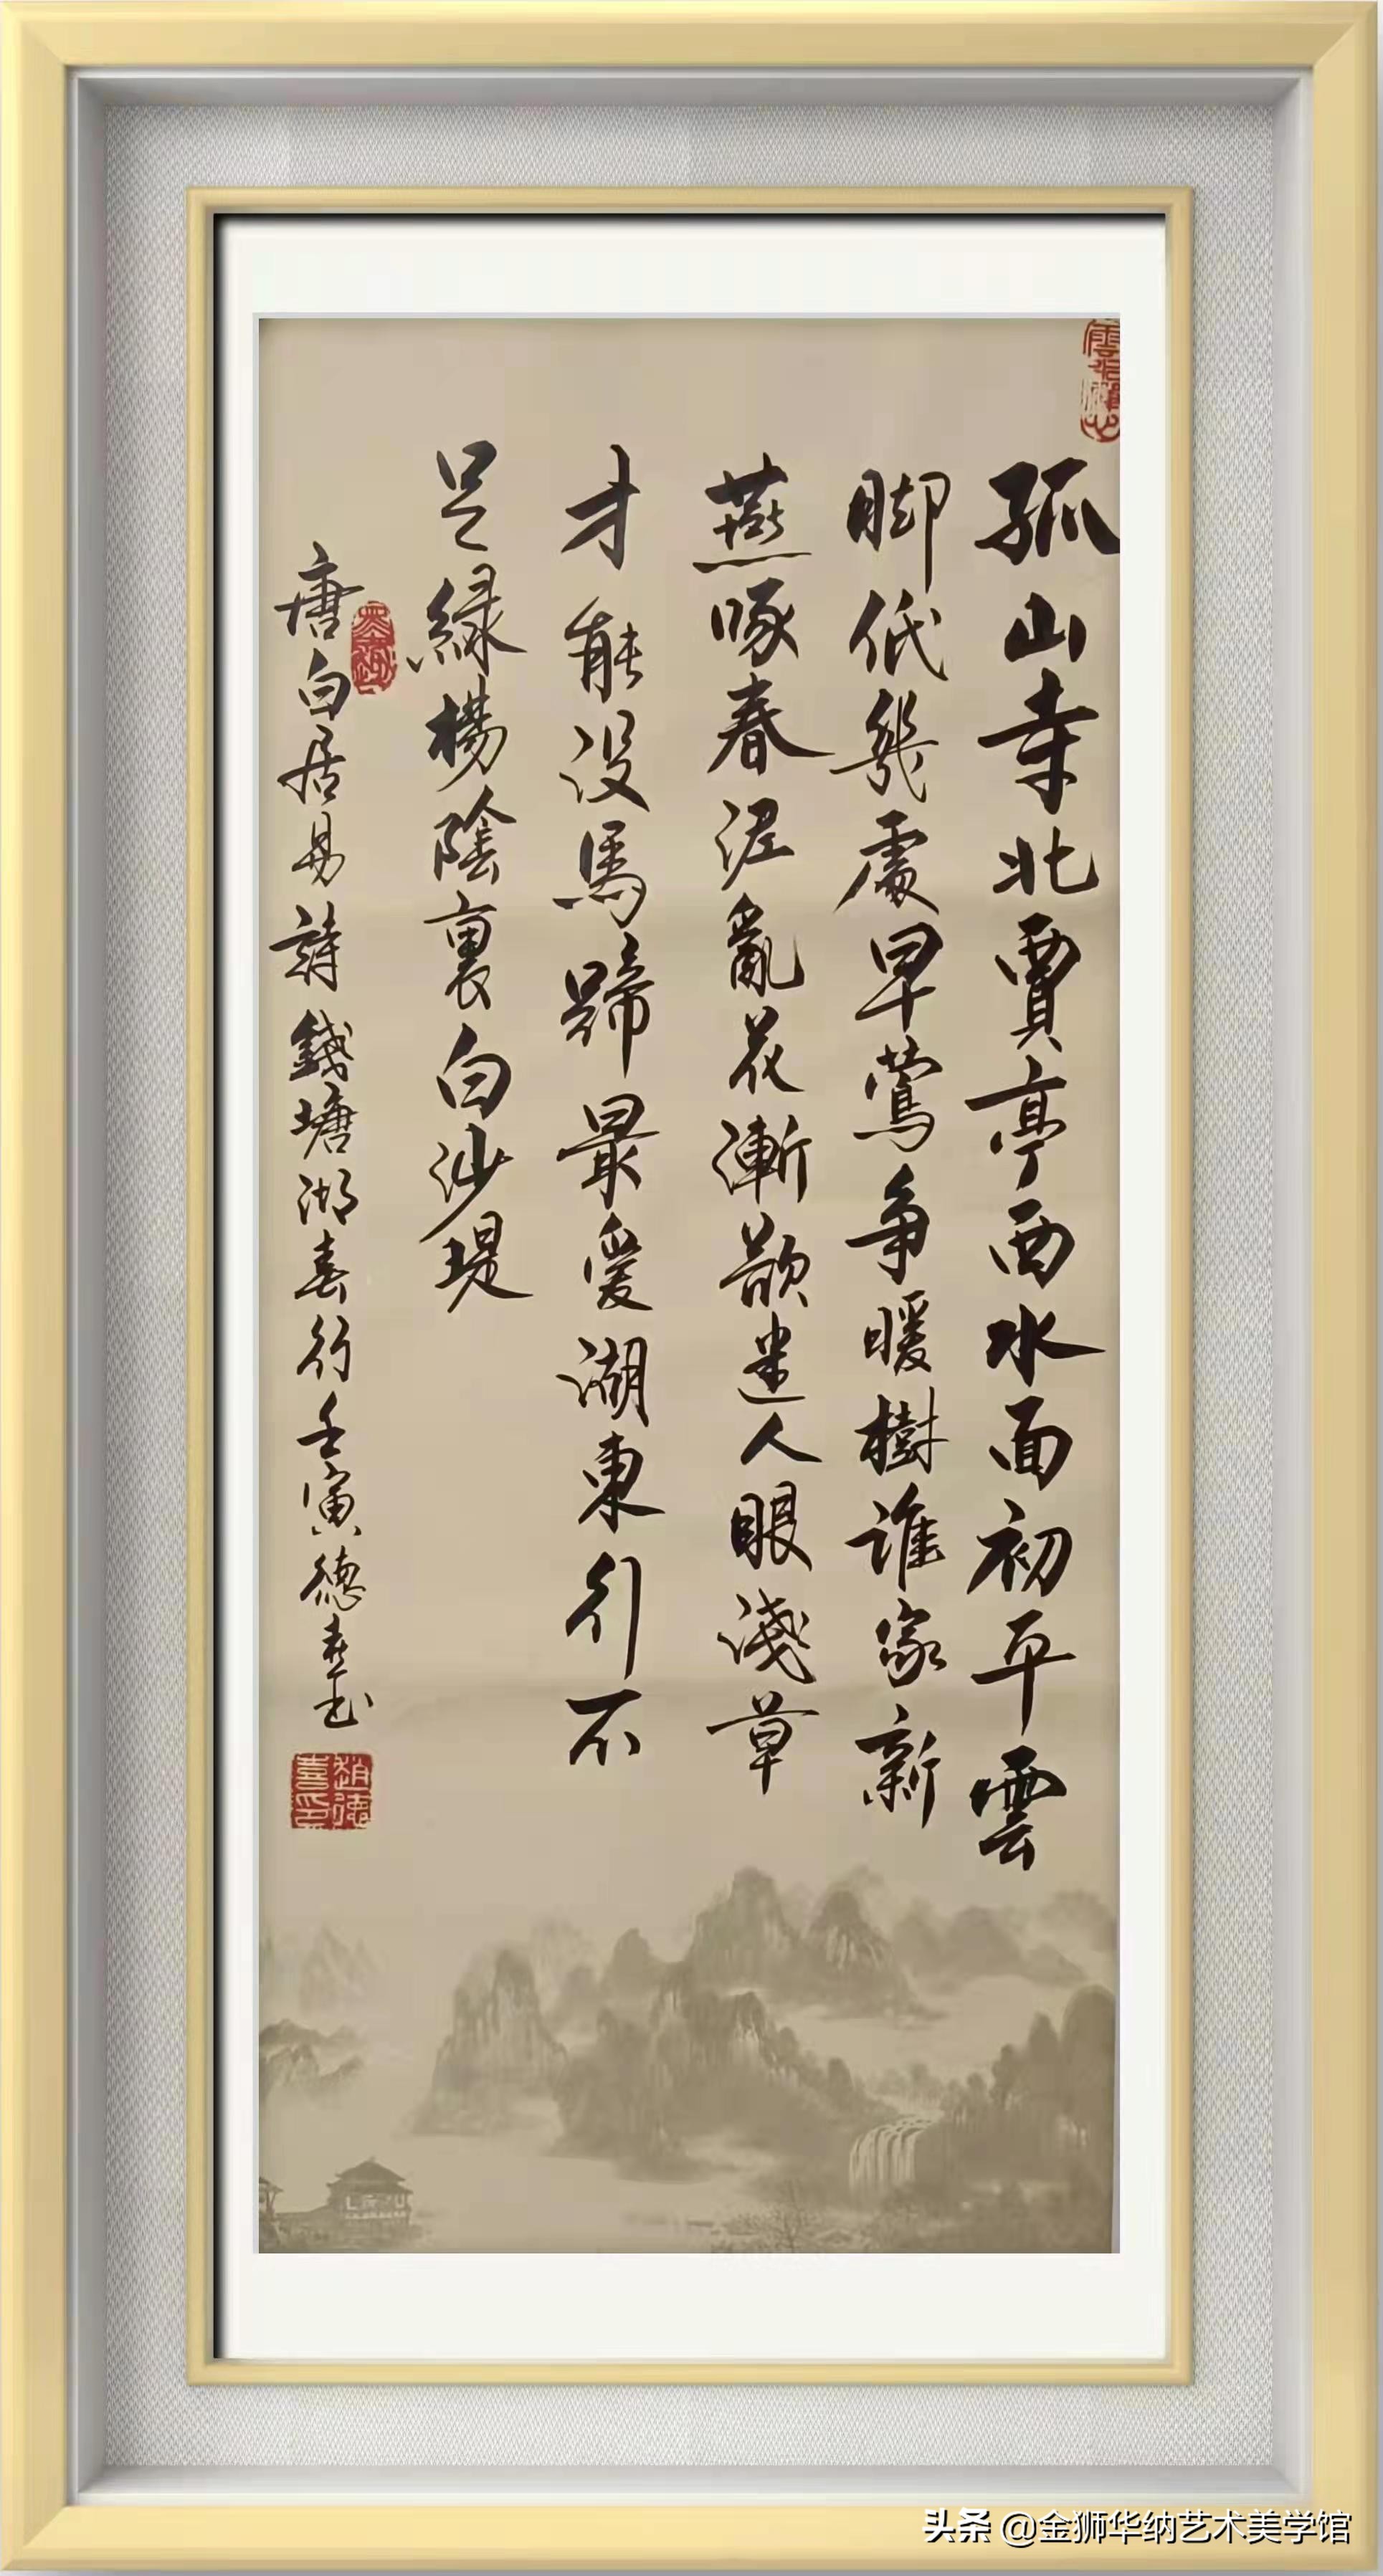 孤山寺北賈亭西水面初平雲
脚低幾處早鶯争暖樹誰家新
燕啄春泥亂花漸欲迷人眼淺草
才能没馬蹄最爱湖東行不
足緑楊陰裏白沙堤
唐白居易詩錢塘湖春行壬寅德喜书
趙德喜印
头条 @金狮华纳艺术美学馆